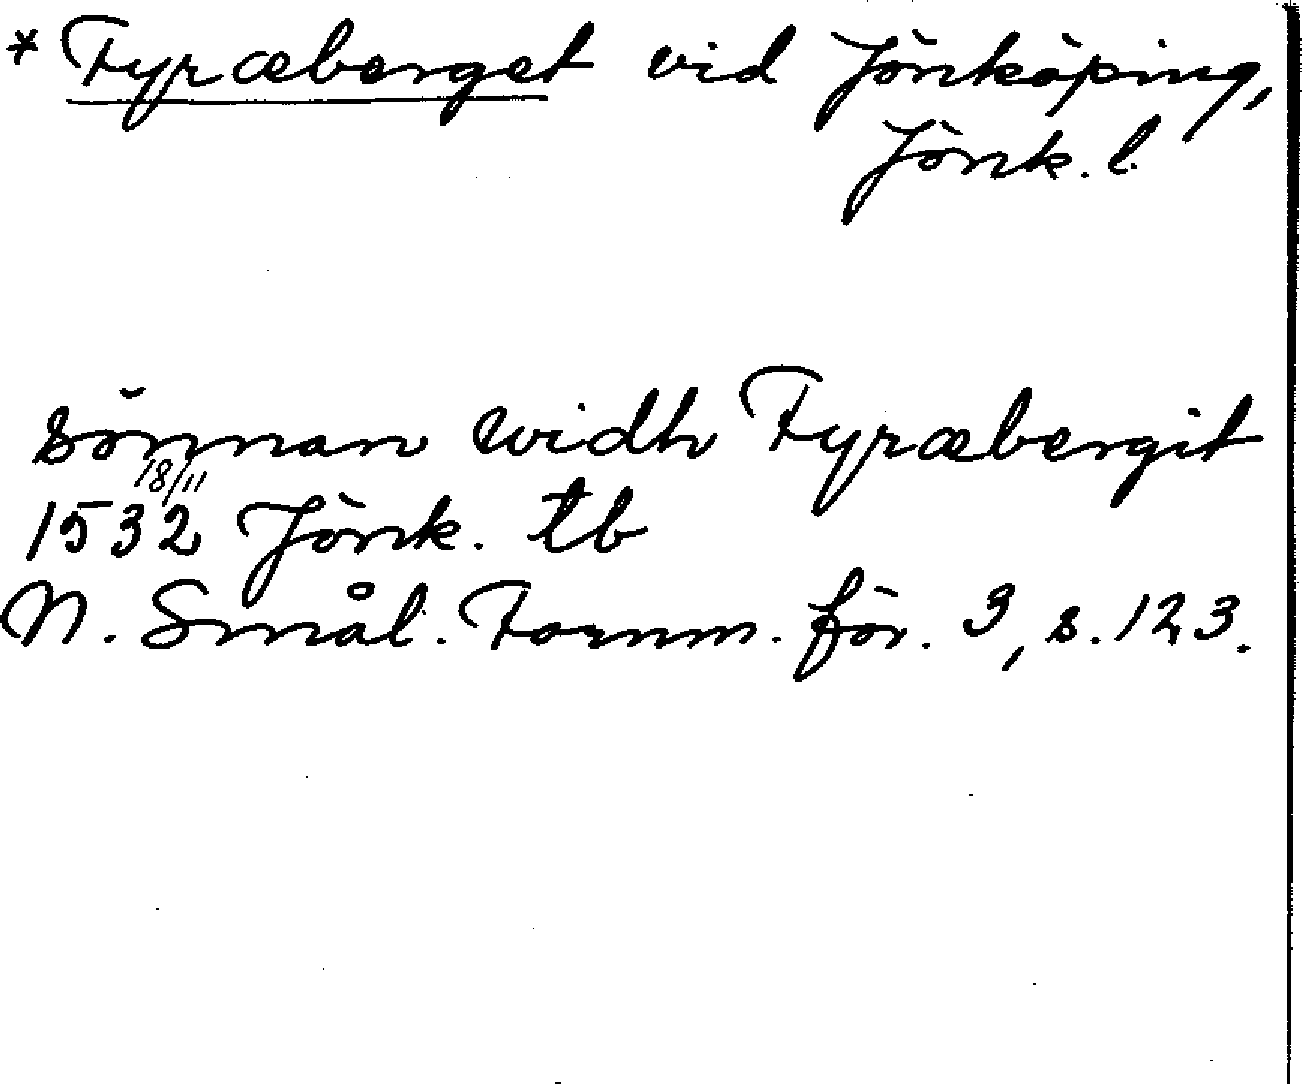 * Fyræberget vid Jönköping,
Jönk. l.
sönnan widh Fyræbergit
18/11
1532 Jönk. tb
N. Smål. Fornm. för. 3, s. 123.